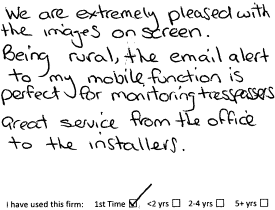 We are extremely pleased with
the images on screen.
Being rural, the email alert
to my mobile function is
perfect for monitoring trespassers
Great service from the office
to the installers.
I have used this firm: 1st Time ☑ <2 yrs ☐ 2-4 yrs ☐ 5+ yrs ☐